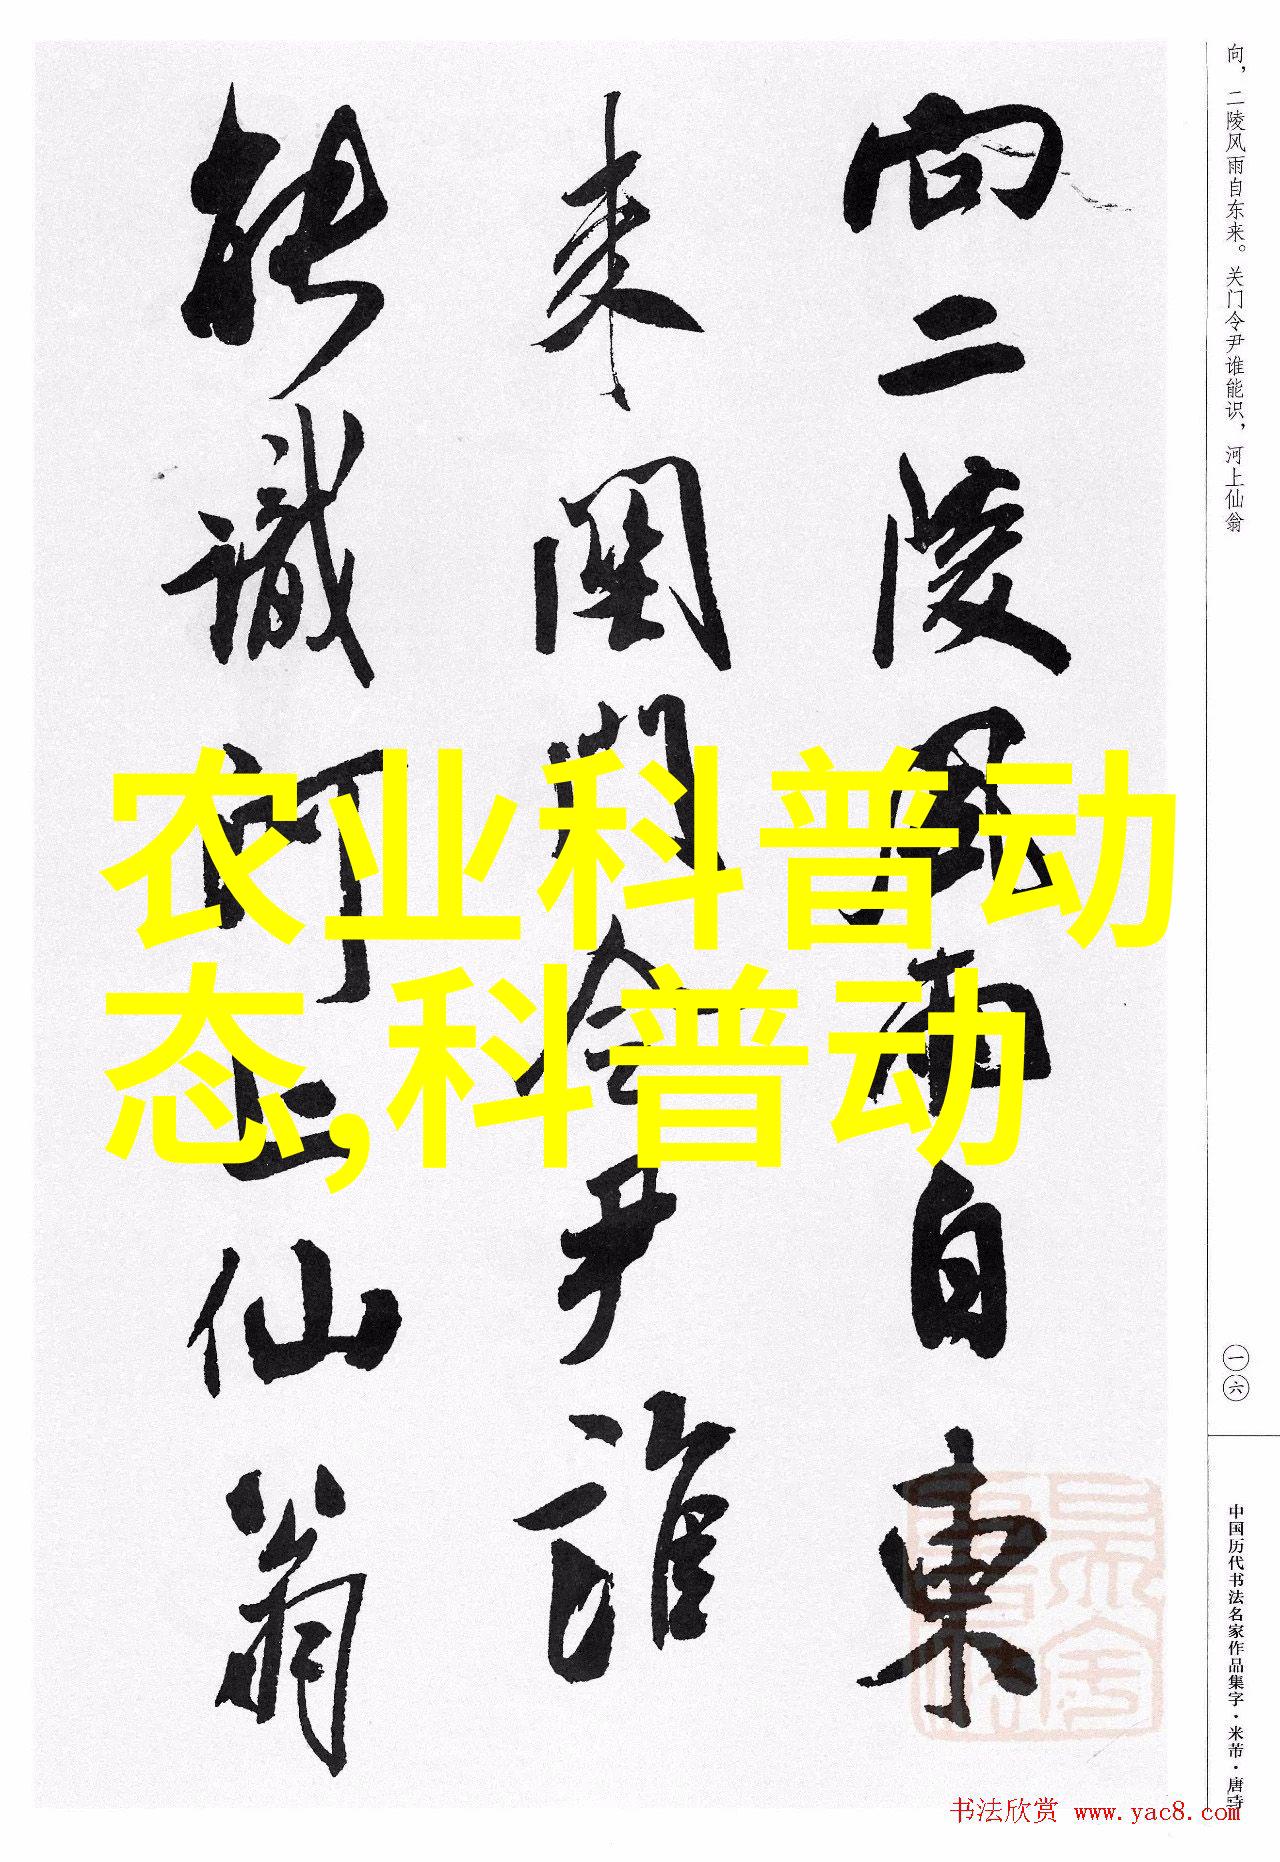 向，二陵风雨自东来。关门令尹谁能识，河上仙翁
向二陵风雨自東
来関門令尹誰
能識河上仙翁
农业科普动
态,科普动
一六
中国历代书法名家作品集字·米芾·唐诗
书法欣赏 www.yac8.com